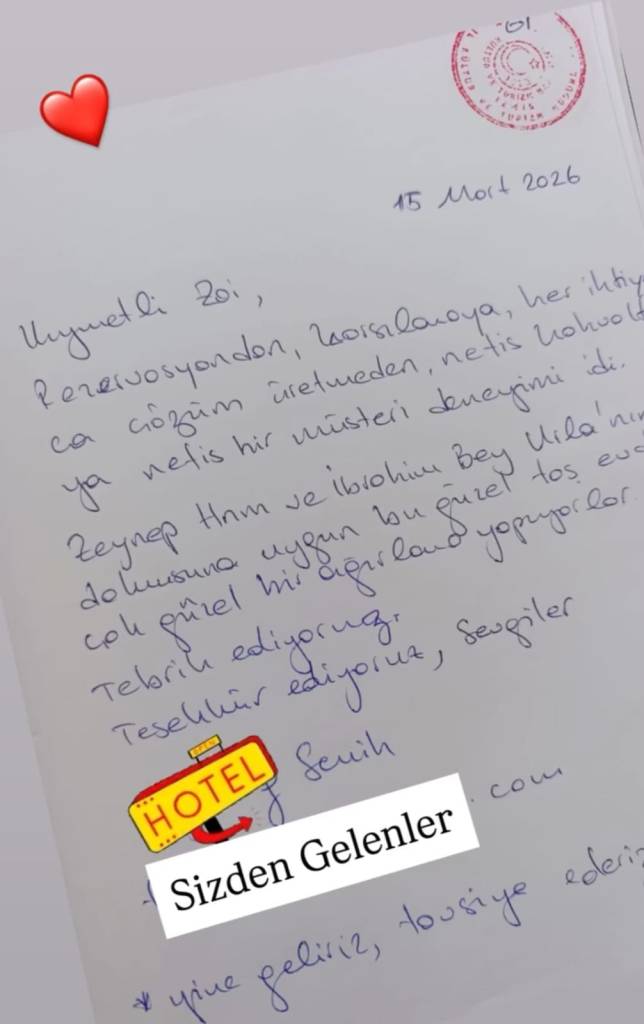 15 Mart 2026
Kıymetli Zoi,
Rezervasyondan, karşılamaya, her ihtiy
ca çözüm üretmeden, nefis kahvalt
ya nefis bir müşteri deneyimi idi.
Zeynep Hnm ve İbrahim Bey Urla'nın
dokusuna uygun bu güzel taş evd
çok güzel bir ağırlama yapıyorlar.
Tebrik ediyoruz.
Teşekkür ediyoruz, Sevgiler
Semih
HOTEL
. com
Sizden Gelenler
* yine geliriz, tavsiye ederiz